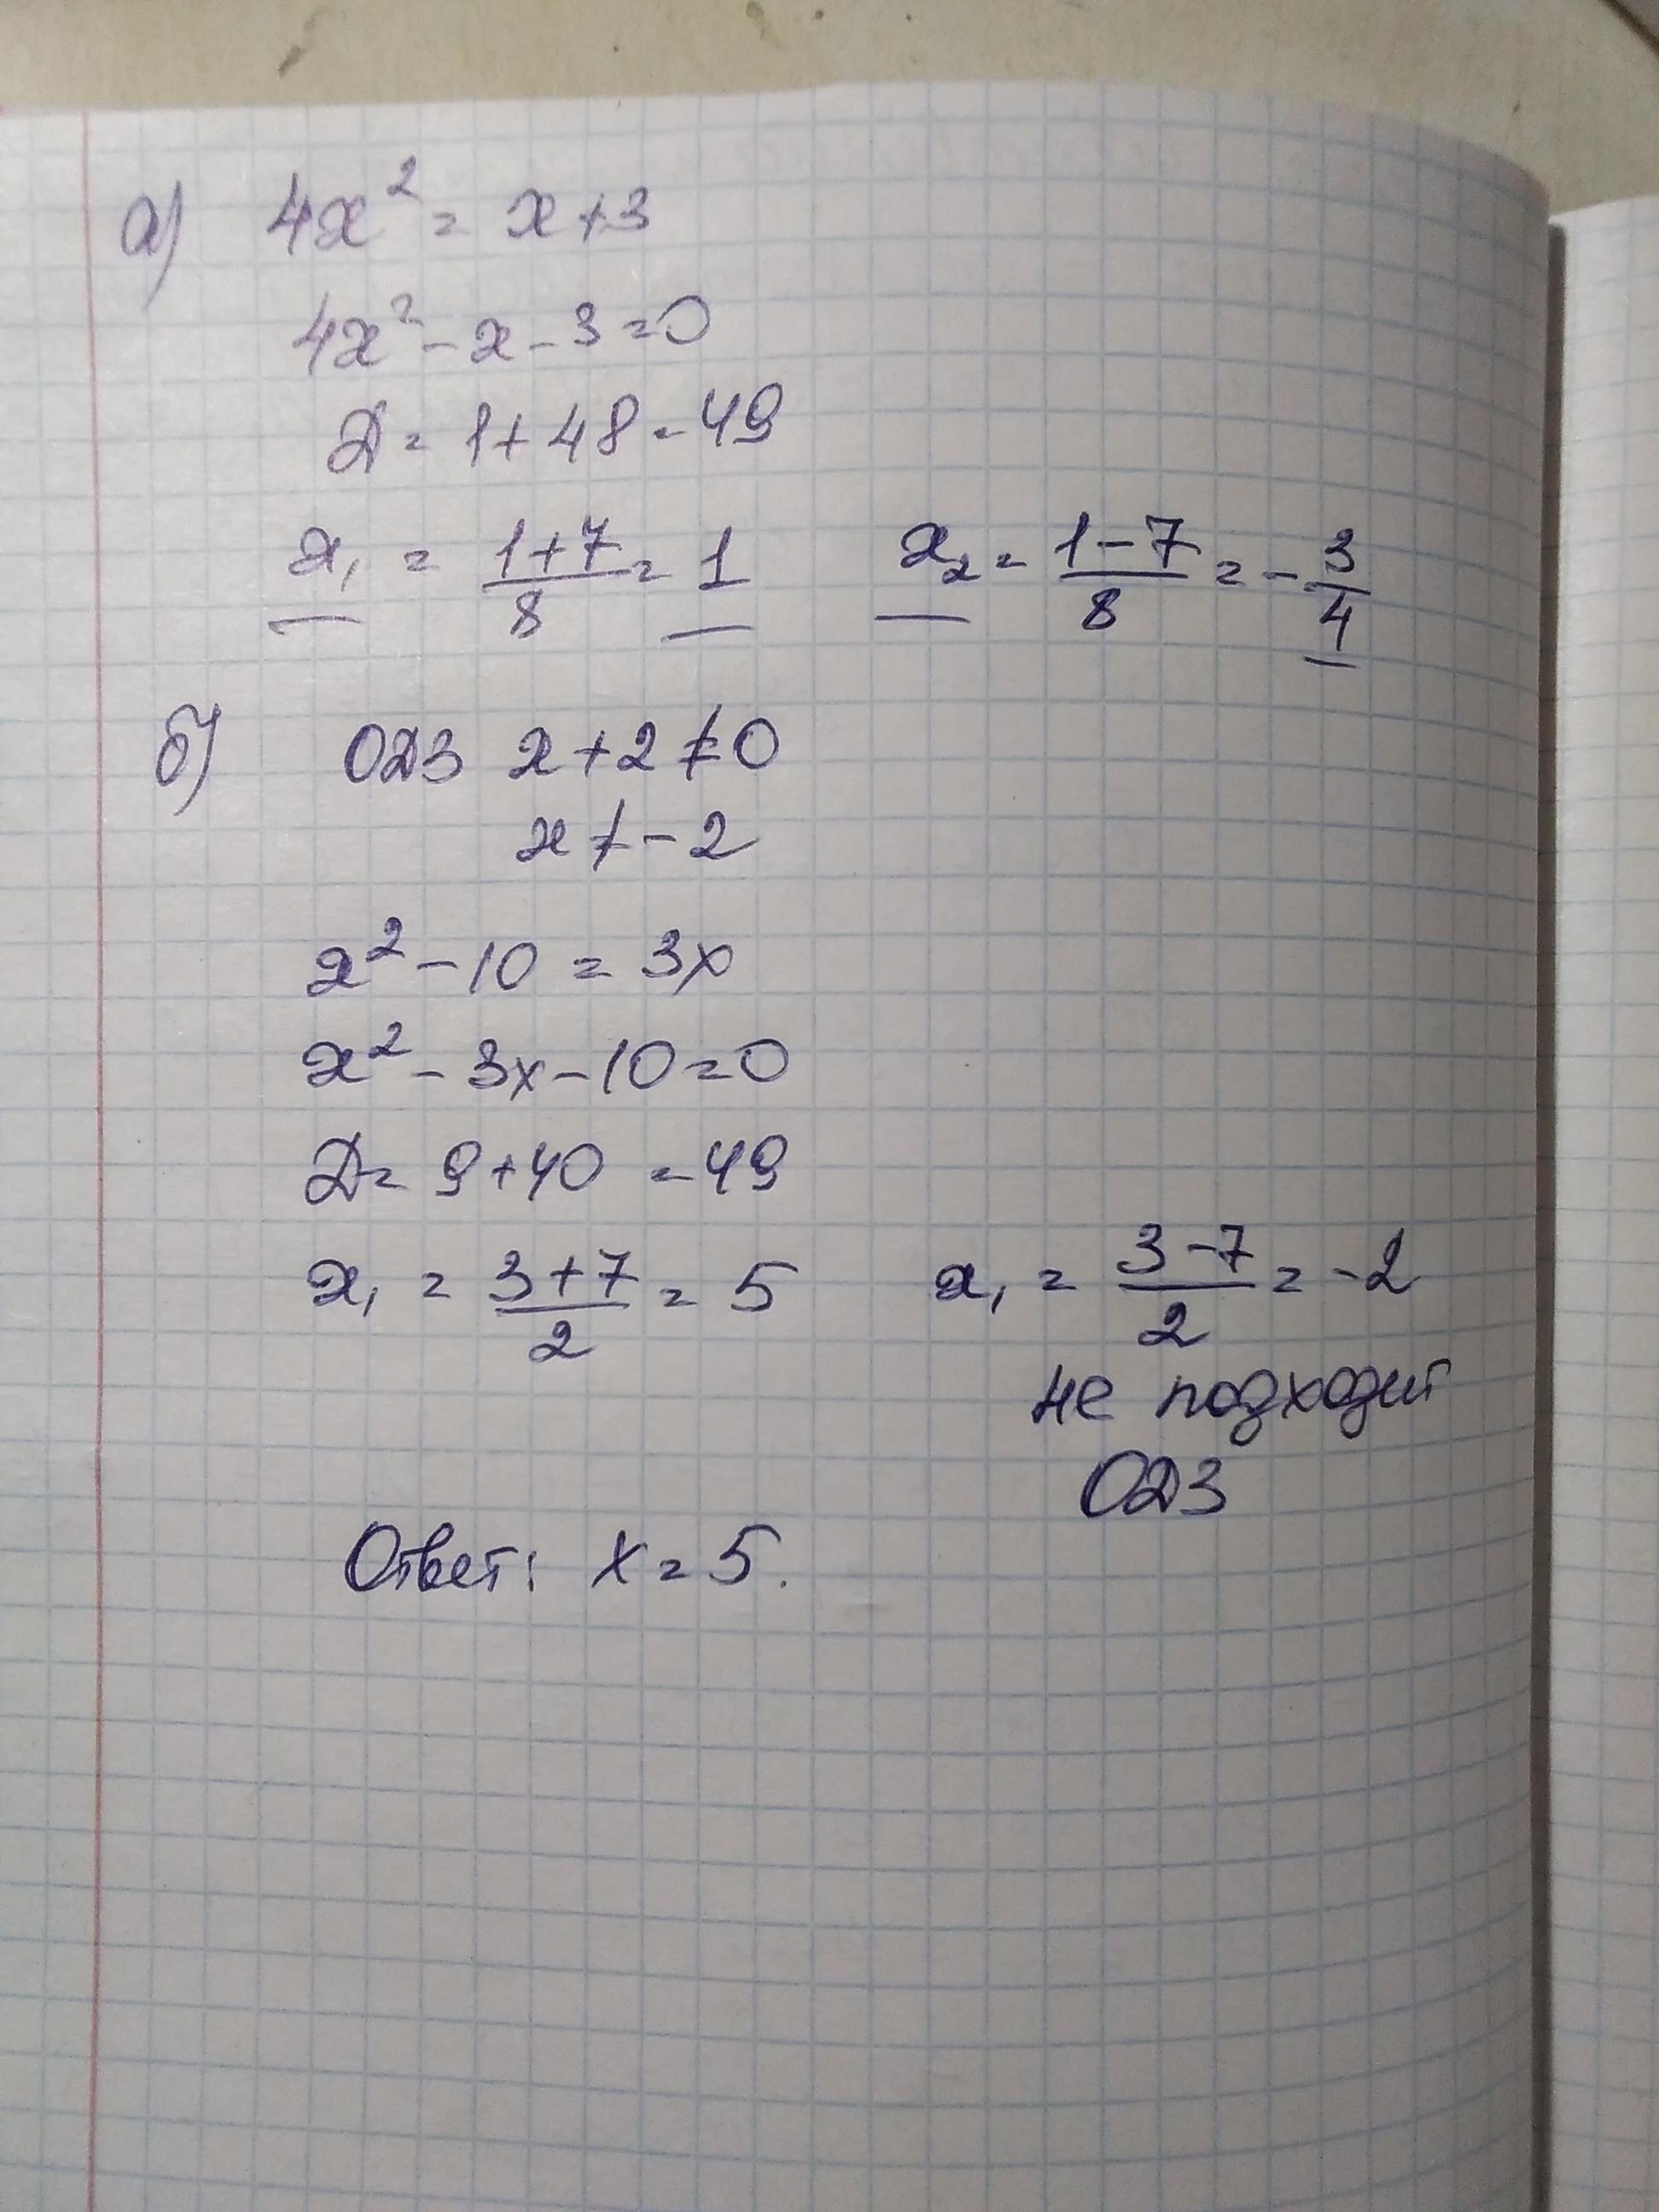 а) 4x² = x + 3
4x² - x - 3 = 0
D = 1 + 48 = 49
x₁ = (1+7)/8 = 1 x₂ = (1-7)/8 = -3/4
б) ОДЗ x + 2 ≠ 0
x ≠ -2
x² - 10 = 3x
x² - 3x - 10 = 0
D = 9 + 40 = 49
x₁ = (3+7)/2 = 5 x₁ = (3-7)/2 = -2
не подходит
ОДЗ
Ответ: x = 5.